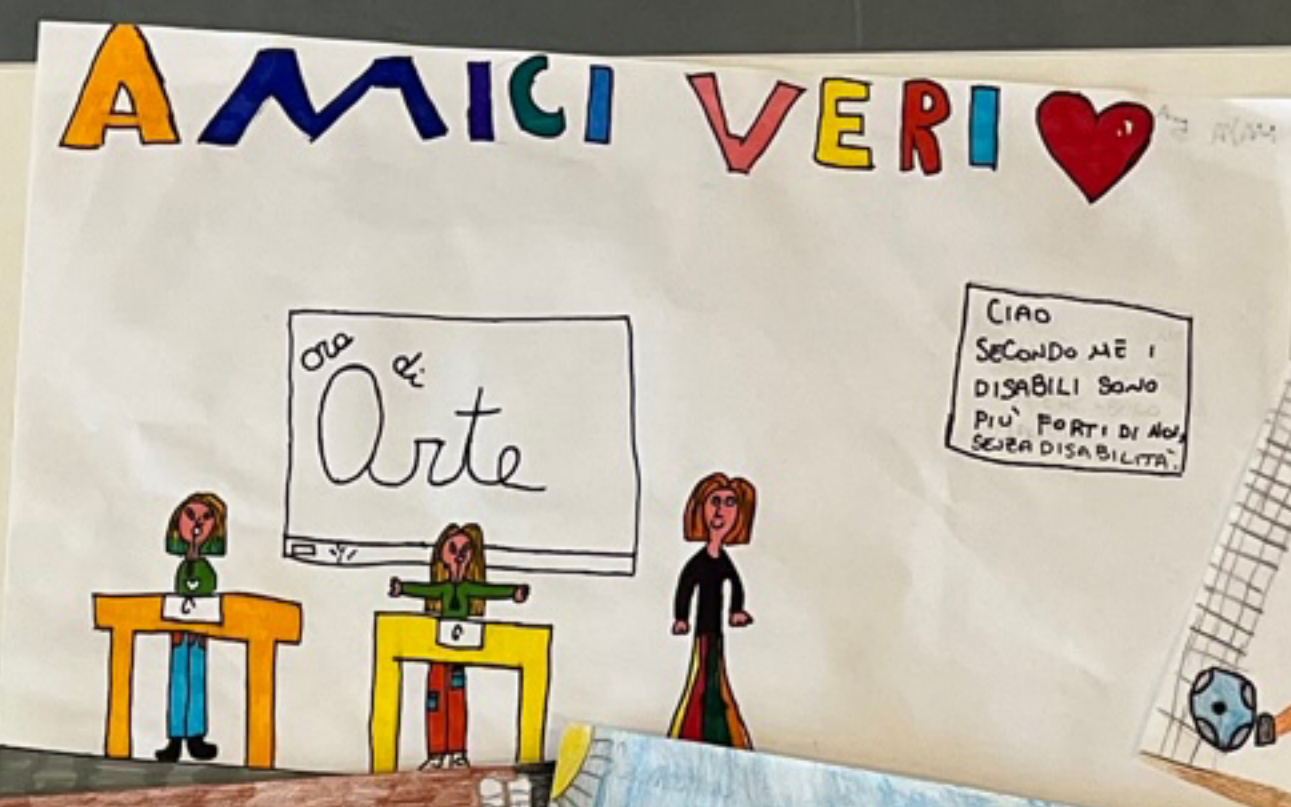 AMICI VERI
ora di
Arte
CIAO
SECONDO ME I
DISABILI SONO
PIÙ FORTI DI NOI,
SENZA DISABILITÀ.